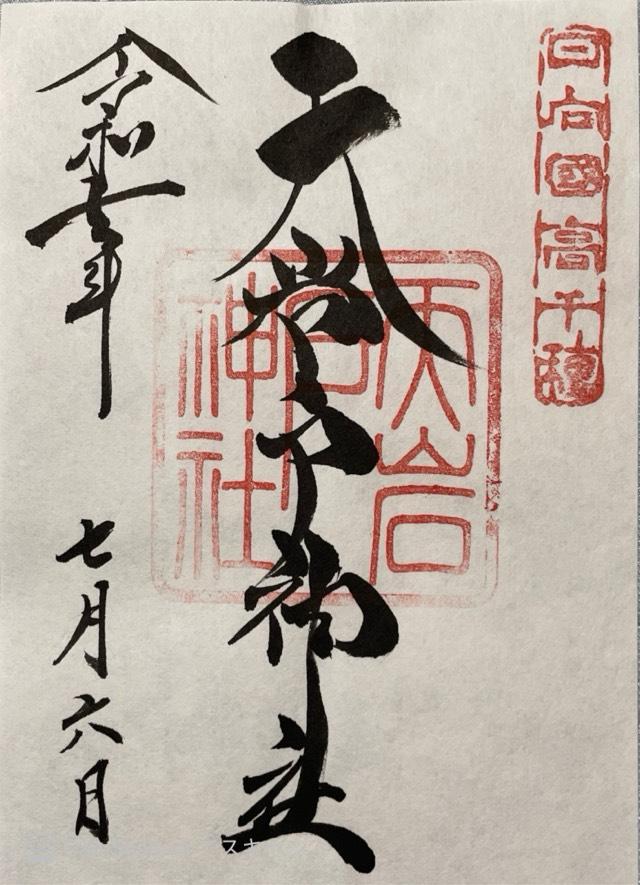 日向國高千穂
天岩戸神社
天岩戸神社
令和七年
七月六日